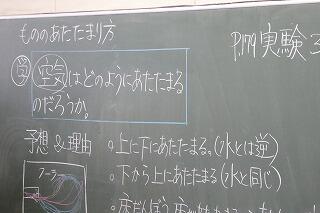 もののあたたまり方
P.179 実験3
学 空気はどのようにあたたまる
のだろうか。
予想&理由
クーラー
○上に下にあたたまる。(水とは逆)
○下から上にあたたまる(水と同じ)
○床だんぼう